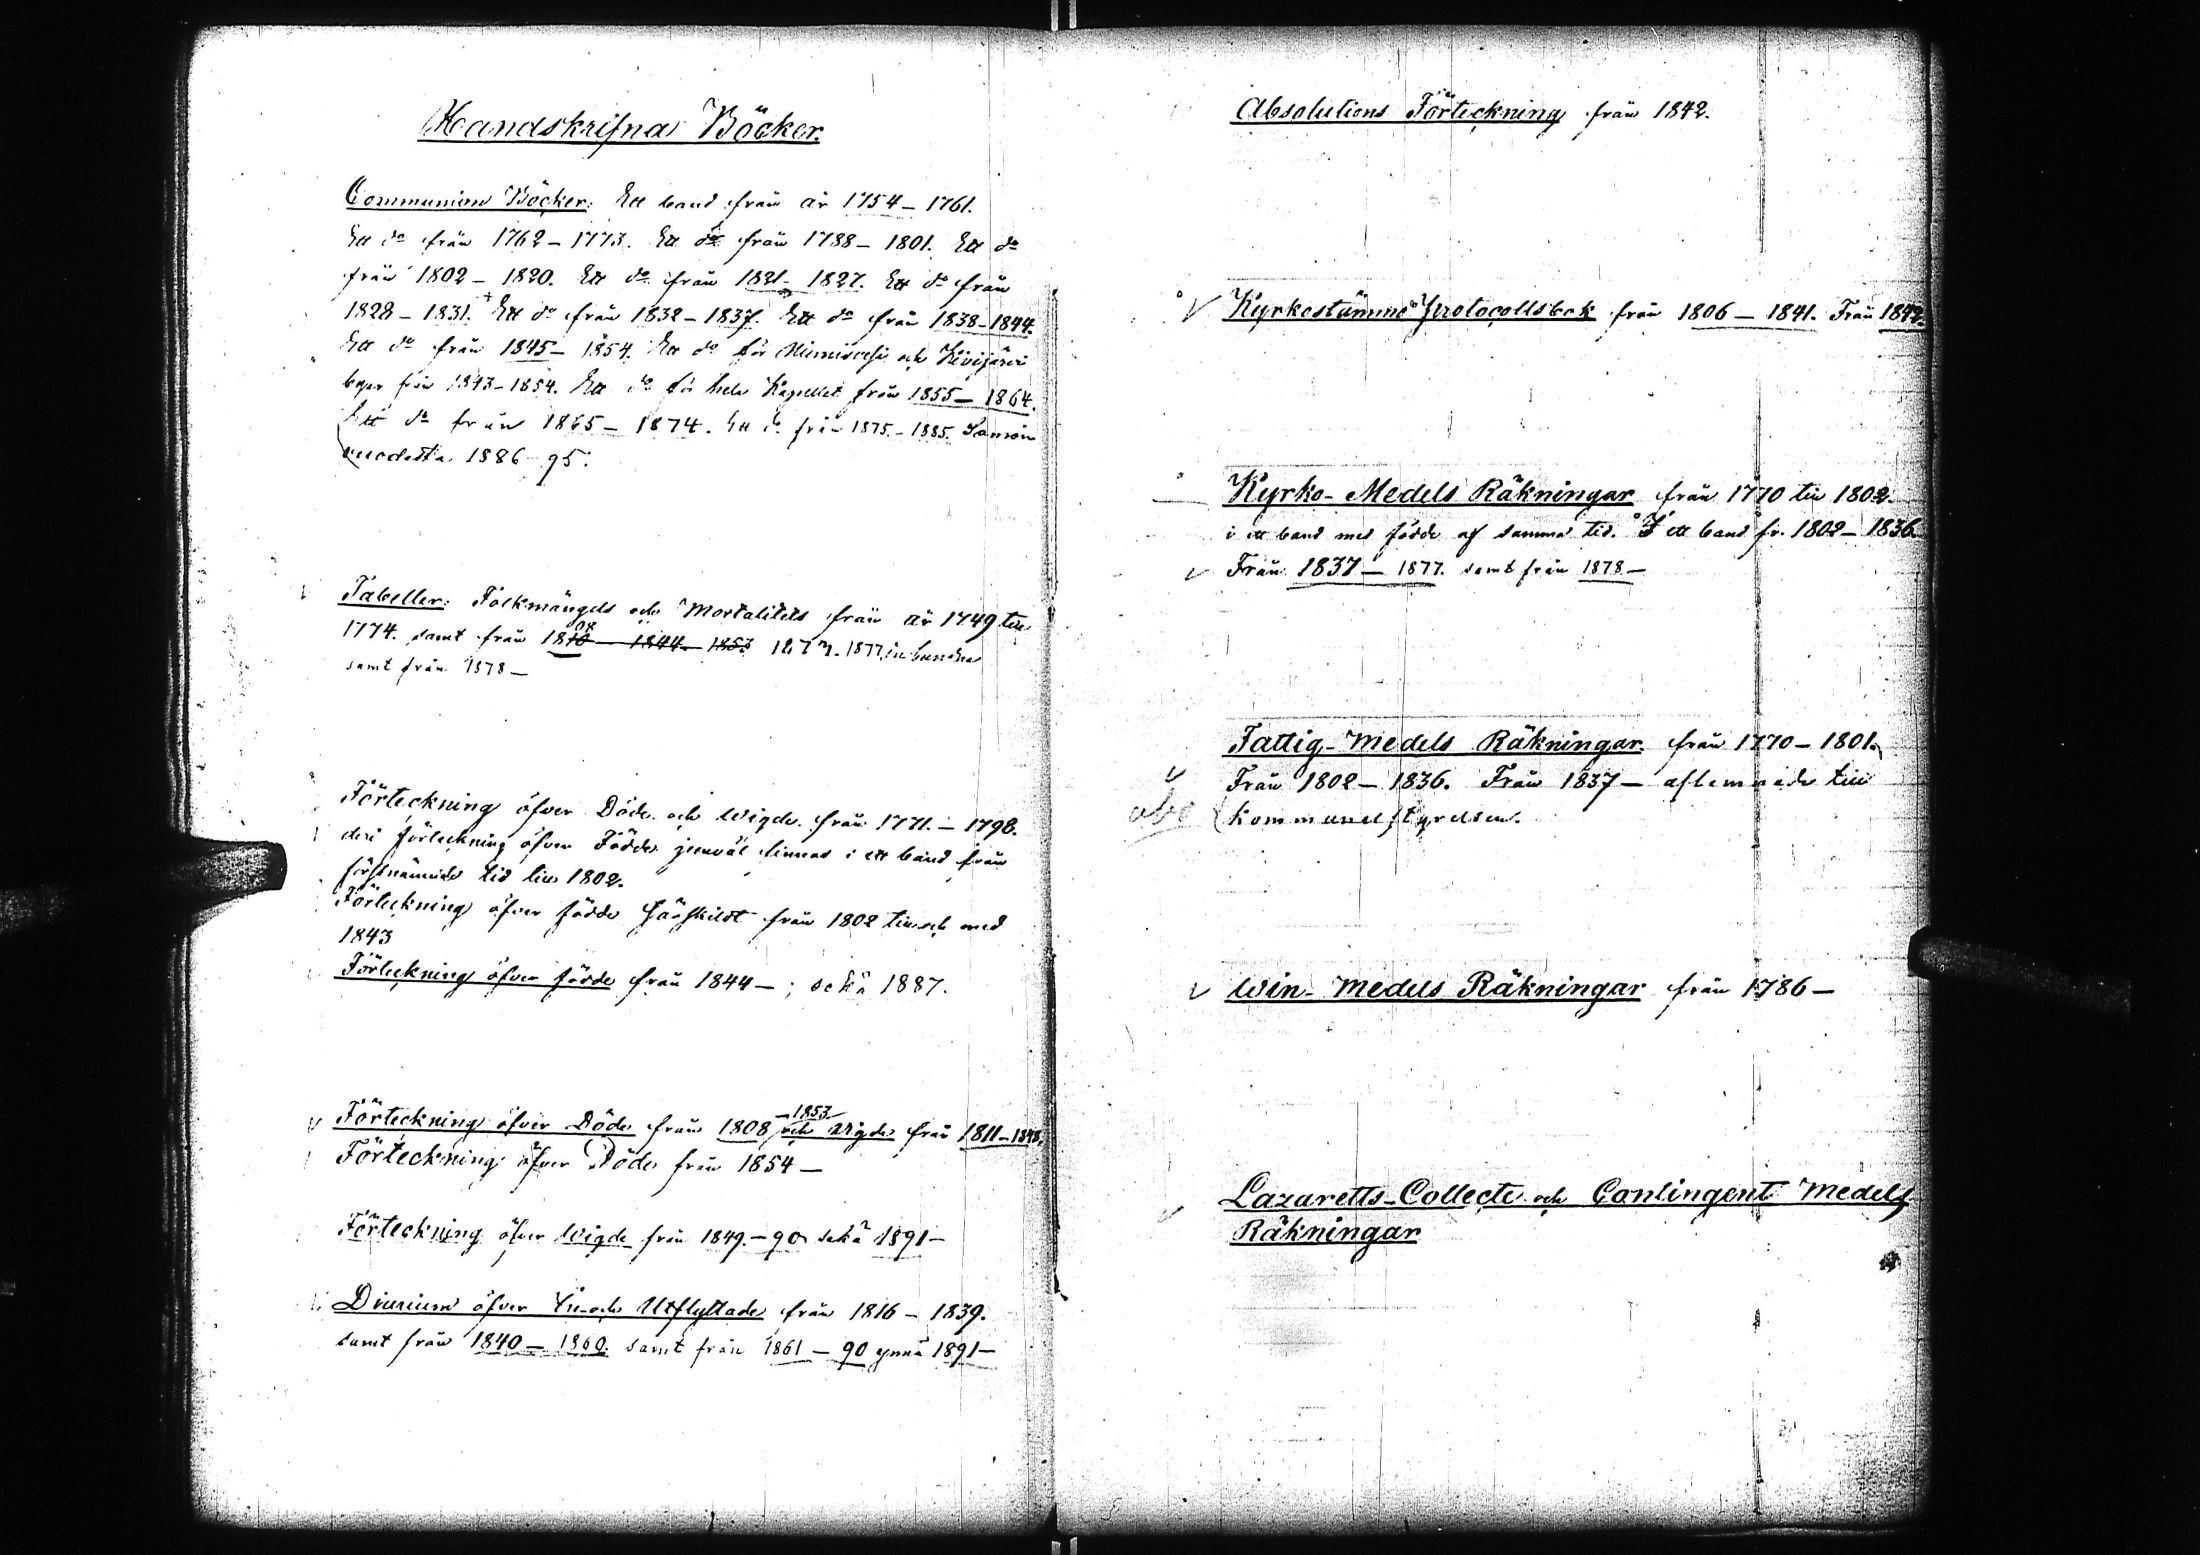 Handskrifna Böcker.
Communion Böcker: Ett band från år 1754 – 1761.
Ett do från 1762 – 1773. Ett do från 1788 – 1801. Ett do
från 1802 – 1820. Ett do från 1821 – 1827. Ett do från
1828 – 1831. Ett do från 1832 – 1837. Ett do från 1838 – 1844.
Ett do från 1845 – 1854. Ett do för och Kivijärvi
från 1843 – 1854. Ett do för hela Kapellet från 1855 – 1864.
Ett do från 1865 – 1874. Ett do från 1875 – 1885. Samoin
vuodesta 1886 – 95.
Tabeller: Folkmängds och Mortalitets från år 1749 till
1774. samt från 1808 1877 inbundna
samt från 1878 –
Förteckning öfver Döde och Wigde från 1771. – 1798.
deri förteckning öfver Födde jemväl finnes i ett band från
förstnämnde tid till 1802.
Förteckning öfver födde särskildt från 1802 till och med
1843
Förteckning öfver födde från 1844 – ; sekä 1887.
Förteckning öfver Döde från 1808 – 1853 och Vigde från 1811 – 1848.
Förteckning öfver Döde från 1854 –
Förteckning öfver Wigde från 1849. – 90 sekä 1891 –
Diurium öfver In- och Utflyttade från 1816 – 1839.
samt från 1840 – 1860. samt från 1861 – 90 ynnä 1891 –
Absolutions Förteckning från 1842.
Kyrkostämmo Protocollsbok från 1806 – 1841. Från 1842.
Kyrko-Medels Räkningar från 1770 till 1802.
i ett band med födde af samma tid. I ett band fr. 1802 – 1836.
Från 1837 – 1877. samt från 1878 –
Fattig-Medels Räkningar från 1770 – 1801.
Från 1802 – 1836. Från 1837 – aflemnade till
Kommunalstyrelsen.
Win-Medels Räkningar från 1786 –
Lazaretts-Collect och Contingent Medels
Räkningar